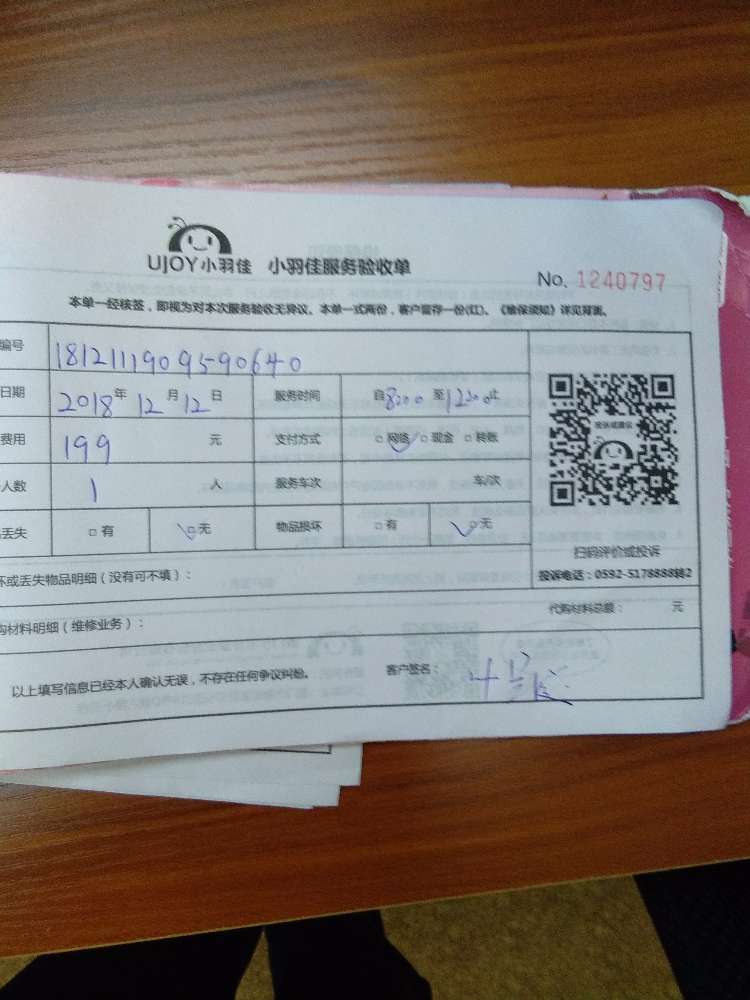 UJOY小羽佳 小羽佳服务验收单
No. 1240797
本单一经核签，即视为对本次服务验收无异议。本单一式两份，客户留存一份(红)。《维保须知》详见背面。
编号 1812111909590640
日期 2018年12月12日 服务时间 自8:00至12:00止
费用 199 元 支付方式 □网络 □现金 □转账
人数 1 人 服务车次 车/次
丢失 □有 □无 物品损坏 □有 □无
扫码评价或投诉
投诉电话：0592-5178888转2
坏或丢失物品明细（没有可不填）：
代购材料总额： 元
购材料明细（维修业务）：
以上填写信息已经本人确认无误，不存在任何争议纠纷。 客户签名：